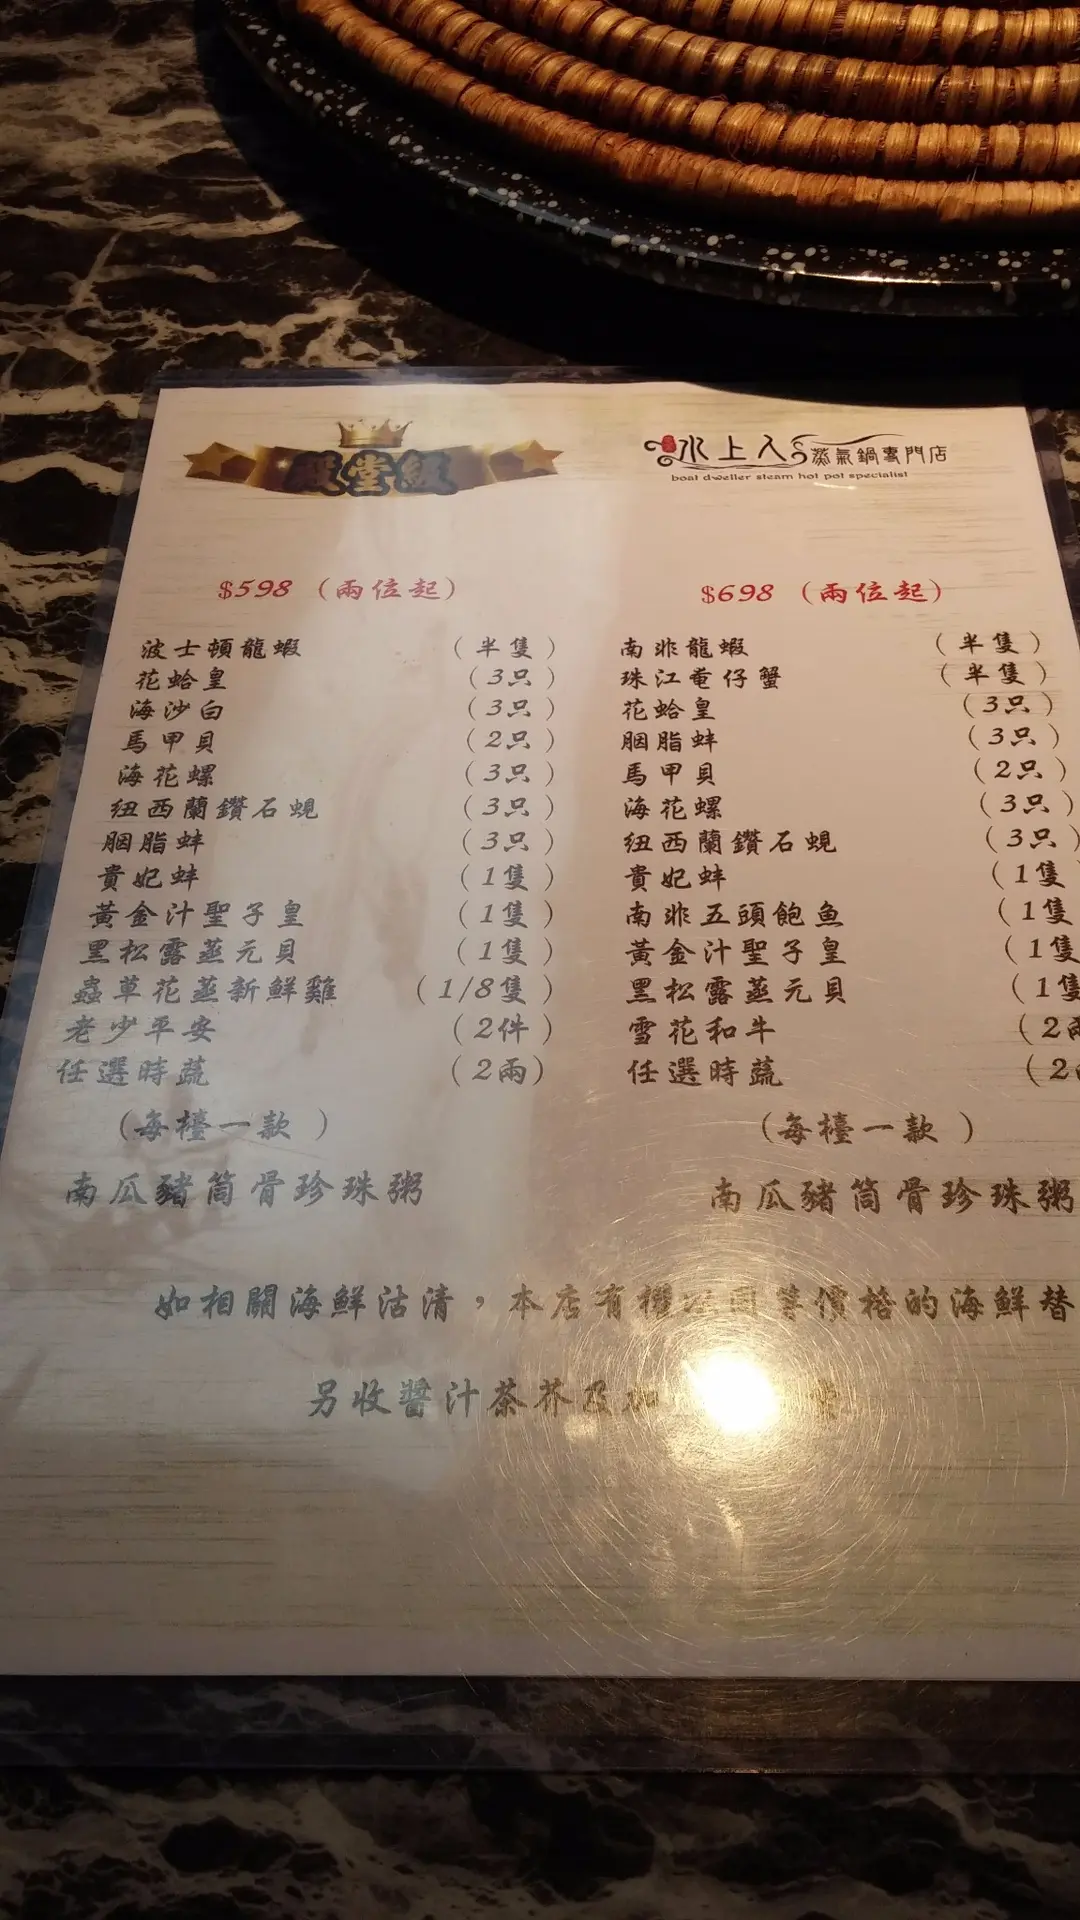 殿堂級
水上人 蒸氣鍋專門店
boat dweller steam hot pot specialist
$598 (兩位起)
波士頓龍蝦 (半隻)
花蛤皇 (3只)
海沙白 (3只)
馬甲貝 (2只)
海花螺 (3只)
紐西蘭鑽石蜆 (3只)
胭脂蚌 (3只)
貴妃蚌 (1隻)
黃金汁聖子皇 (1隻)
黑松露蒸元貝 (1隻)
蟲草花蒸新鮮雞 (1/8隻)
老少平安 (2件)
任選時蔬 (2兩)
(每檯一款)
南瓜豬筒骨珍珠粥
$698 (兩位起)
南非龍蝦 (半隻)
珠江奄仔蟹 (半隻)
花蛤皇 (3只)
胭脂蚌 (3只)
馬甲貝 (2只)
海花螺 (3只)
紐西蘭鑽石蜆 (3只)
貴妃蚌 (1隻
南非五頭鮑魚 (1隻
黃金汁聖子皇 (1隻
黑松露蒸元貝 (1隻
雪花和牛 (2兩
任選時蔬 (2
(每檯一款)
南瓜豬筒骨珍珠粥
如相關海鮮沽清，本店有權 同等價格的海鮮替
另收醬汁茶芥及加